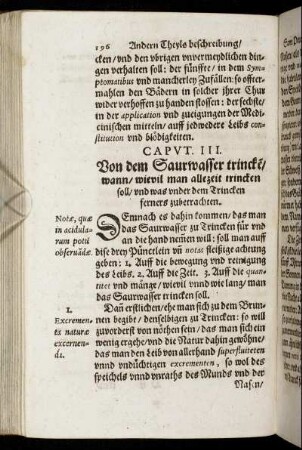 196 Andern Theyls beschreibung/
cken/vnd den vbrigen vnvermeydlichen din-
gen verhalten soll: der fünffte/ in dem Sym-
ptomatibus vnd mancherley Zufällen: so offter-
mahlen den Bädern in solcher jhrer Chur
wider verhoffen zu handen stossen: der sechste/
in der application vnd zueigungen der Medi-
cinischen mitteln/ auff jedwedere Leibs con-
stitution vnd blödigkeiten.
CAPVT. III.
Von dem Saurwasser trincke/
wann/ wievil man allezeit trincken
soll/ vnd was vnder dem Trincken
ferners zubetrachten.
Notæ, quæ
in acidula-
rum potu
observādæ.
DEmnach es dahin kommen/ das man
das Saurwasser zu Trincken für vnd
an die hand nemen will: soll man auff
dise drey Püncrlein vn̄ notas fleißige achtung
geben: 1. Auff die bewegung vnd reinigung
des Leibs. 2. Auff die Zeit. 3. Auff die quan-
titet vnd mänge/ wievil vnnd wie lang/ man
das Saurwasser trincken soll.
1.
Excremen-
ta naturæ
excernen-
di.
Dañ erstlichen/ ehe man sich zu dem Brun-
nen begibt/ denselbigen zu Trincken: so will
zuvorderst von nöthen sein/ das man sich ein
wenig ergehe/ vnd die Natur dahin gewöhne/
das man den Leib von allerhand superfluiteten
vnnd vndüchtigen excrementen, so wol des
speichels vnnd vnraths des Munds vnd der
Nasen/